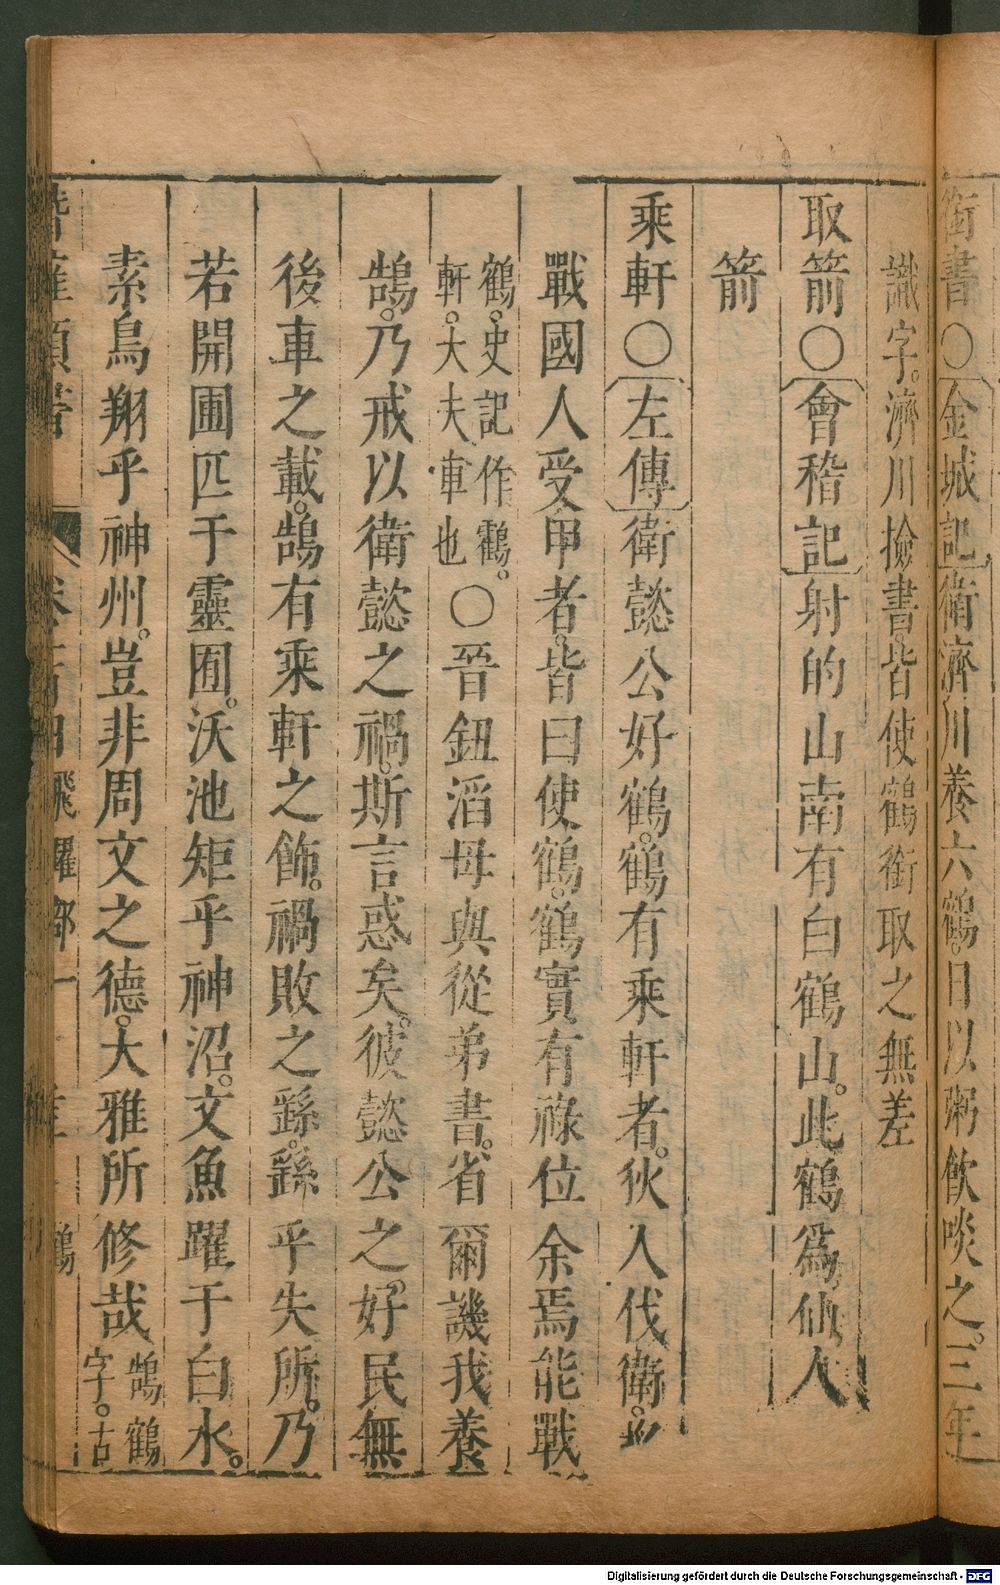 銜書○金城記衛濟川養六鶴。日以粥飲啖之。三年
識字。濟川撿書。皆使鶴銜取之無差
取箭○會稽記射的山南有白鶴山。此鶴爲仙人
箭
乘軒○左傳衛懿公好鶴。鶴有乘軒者。狄入伐衛。
戰國人受甲者。皆曰使鶴。鶴實有祿位余焉能戰
鶴。史記作鸖。
軒。大夫車也
○晉鈕滔母與從弟書。省爾譏我養
鵠。乃戒以衛懿之禍。斯言惑矣。彼懿公之。好民無
後車之載。鵠有乘軒之飾。禍敗之繇。繇乎失所。乃
若開圃匹于靈囿。沃池矩乎神沼。文魚躍于白水。
素鳥翔乎神州。豈非周文之德。大雅所修哉
鵠鶴
字。古
飛躍部一
鶴
Digitalisierung gefördert durch die Deutsche Forschungsgemeinschaft - DFG